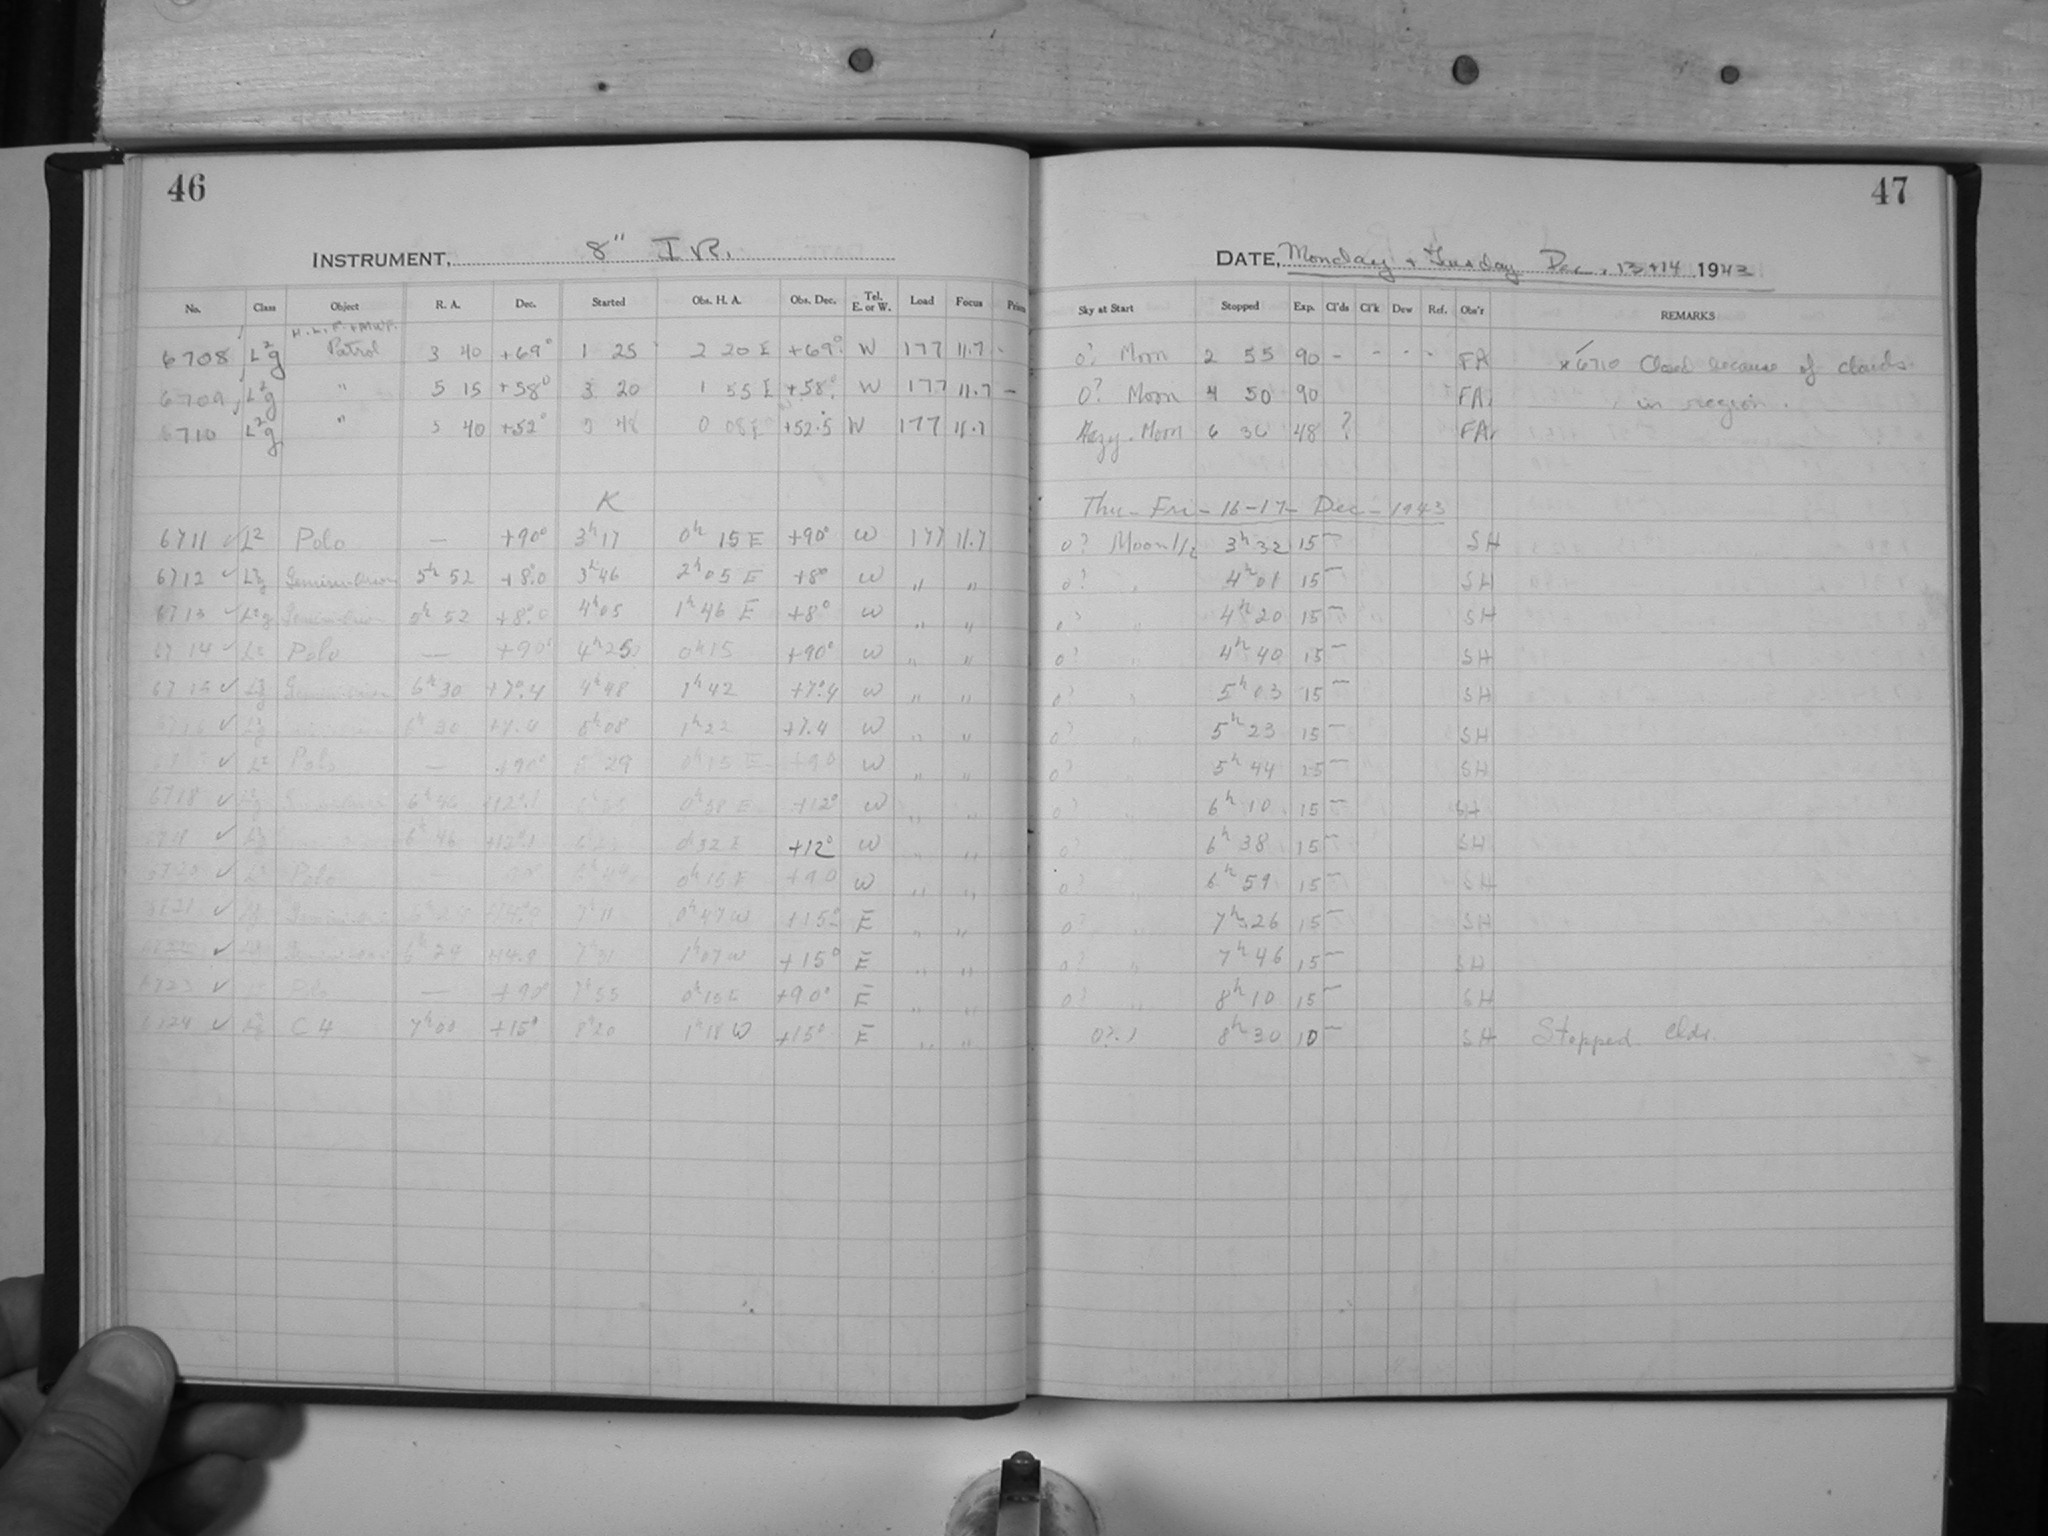 46
INSTRUMENT, 8" I R.
No. Class Object R. A. Dec. Started Obs. H. A. Obs. Dec. Tel. E. or W. Load Focus
6708 L²g Patrol 3 40 +69° 1 25 2 20 E +69° W 177 11.7 -
6709 L²g " 5 15 +58° 3 20 1 55 E +58° W 177 11.7 -
6710 L²g " 5 40 +52° 5 48 0 08 E +52.5 W 177 11.7
K
6711 ✓ L² Polo — +90° 3h 17 0h 15 E +90° W 177 11.7
6712 ✓ L²g 5h 52 +8°.0 3h 46 2h 05 E +8° W " "
6713 ✓ L²g 5h 52 +8°.0 4h 05 1h 46 E +8° W " "
6714 ✓ L² Polo — +90° 4h 25 0h 15 +90° W " "
6715 ✓ L²g 6h 30 +7°.4 4h 48 1h 42 +7°.4 W " "
6716 ✓ L²g 6h 30 +7.4 5h 08 1h 22 +7.4 W " "
✓ L² Polo — +90° 5h 29 0h 15 E +90 W " "
6718 ✓ L²g 6h 46 +12°.1 0h 58 E +12° W " "
✓ L²g 6h 46 +12°.1 0h 32 E +12° W " "
6720 ✓ L² Polo — 0h 15 E +90 W " "
6721 ✓ 7h 11 0h 47 W +15° E " "
✓ 6h 24 +14.9 7h 31 1h 07 W +15° E " "
6723 ✓ Polo — +90° 7h 55 0h 15 E +90° E " "
6724 ✓ L²g C 4 7h 00 +15° 8h 20 1h 18 W +15° E " "
47
DATE, Monday + Tuesday Dec. 13+14 1943
Sky at Start Stopped Exp. Cl'ds Cl'k Dew Ref. Obs'r REMARKS
0? Moon 2 55 90 - - - - FA x6710 Closed because of clouds
0? Moon 4 50 90 FA in region.
Hazy. Moon 6 36 48 ? FA
Thu - Fri - 16-17- Dec - 1943
0? Moon 1/2 3h 32 15 — SH
0? " 4h 01 15 — SH
0? " 4h 20 15 — SH
0? " 4h 40 15 — SH
0? " 5h 03 15 — SH
0? " 5h 23 15 — SH
0? " 5h 44 15 — SH
0? " 6h 10 15 — SH
0? " 6h 38 15 — SH
0? " 6h 59 15 — SH
0? " 7h 26 15 — SH
0? " 7h 46 15 — SH
0? " 8h 10 15 — SH
8h 30 10 — SH Stopped Clds.